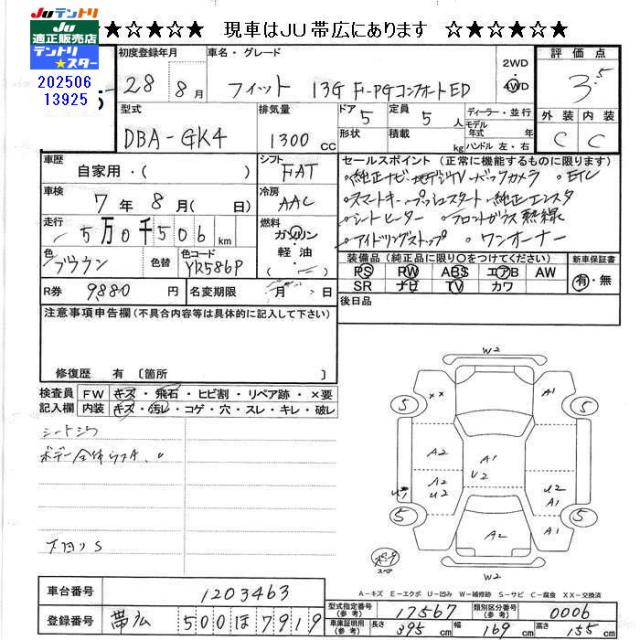 JUテントリ
JU
適正販売店
テントリ
★スター
202506
13925
★☆★☆★ 現車はJU帯広にあります ☆★☆★☆★
初度登録年月
28 8月
車名・グレード
フィット 13G F-PGコンフォートED
2WD
4WD
評価点
3.5
外装 内装
C C
型式
DBA-GK4
排気量
1300 CC
ドア 5
形状
定員 5 人
積載 kg
ディーラー・並行
モデル年式 年
ハンドル 左・右
車歴
自家用・( )
シフト
FAT
車検
7年 8月( 日)
冷房
AAC
走行
5万0千506 km
燃料
ガソリン
軽油
( )
色
ブラウン
色替
色コード
YR586P
R券 9880 円
名変期限 月 日
セールスポイント (正常に機能するものに限ります)
・純正ナビ・地デジTV・バックカメラ ・ETC
・スマートキー・プッシュスタート・純正エンスタ
・シートヒーター ・フロントガラス熱線
・アイドリングストップ ・ワンオーナー
装備品 (純正品に限り○をつけてください)
PS PW ABS エアB AW
SR ナビ TV カワ
新車保証書
有・無
後日品
注意事項申告欄(不具合内容等は具体的に記入して下さい)
修復歴 有 〔箇所
検査員
記入欄
FW キズ・飛石・ヒビ割・リペア跡・×要
内装 キズ・汚レ・コゲ・穴・スレ・キレ・破レ
シートシワ
ボデー全体ウスキ、
下回りS
W2
××
A1
5
5
A2
A1
U2
A2
U2
U1
U2
A1
A1
5
5
A2
W2
スペア
A-キズ E-エクボ U-凹み W-補修跡 S-サビ C-腐食 XX-交換済
車台番号 1203463
登録番号 帯広 500ほ7919
型式指定番号
(参考)
17567
類別区分番号
(参考)
0006
車庫証明用
(参考)
長さ 395 cm 幅 169 cm 高さ 155 cm